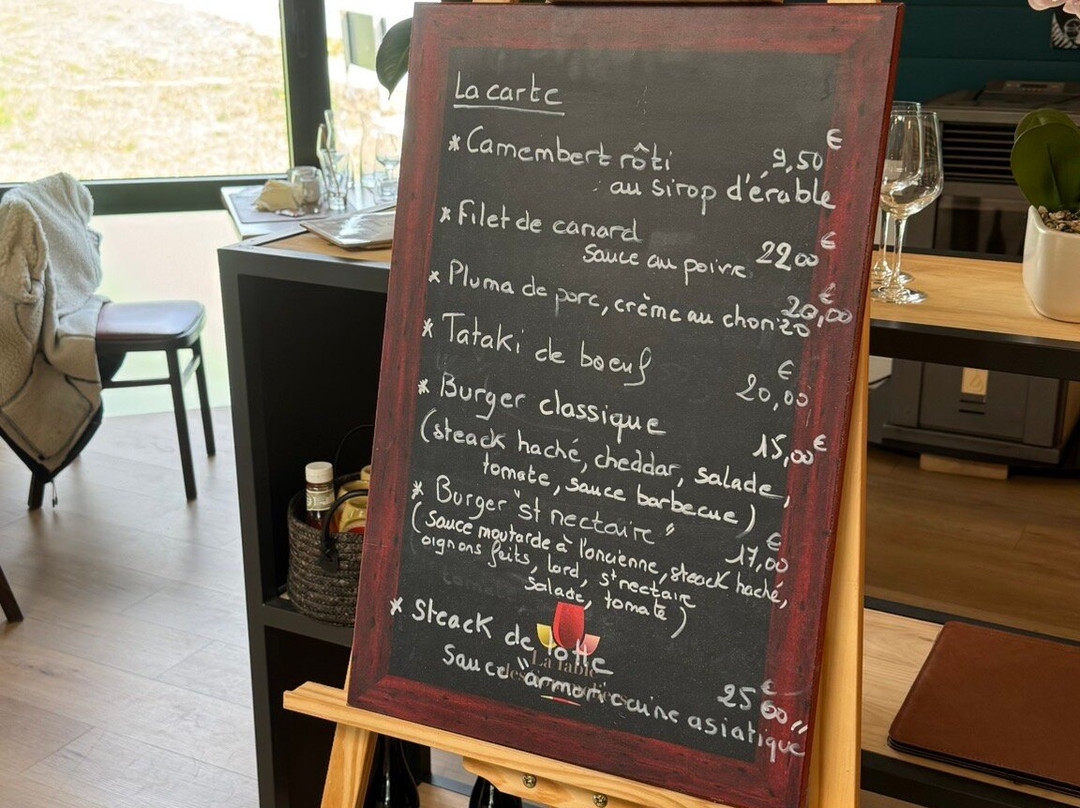 La carte
* Camembert rôti 9,50€
au sirop d'érable
* Filet de canard
sauce au poivre 22,00€
* Pluma de porc, crème au chorizo 20,00€
* Tataki de boeuf
20,00€
* Burger classique
15,00€
(steack haché, cheddar, salade,
tomate, sauce barbecue)
* Burger "st nectaire"
17,00€
(Sauce moutarde à l'oncienne, steack haché,
oignons frits, lard, st nectaire
salade, tomate)
* Steack de lotte
La Table
25,00€
Sauce "armoricaine asiatique"